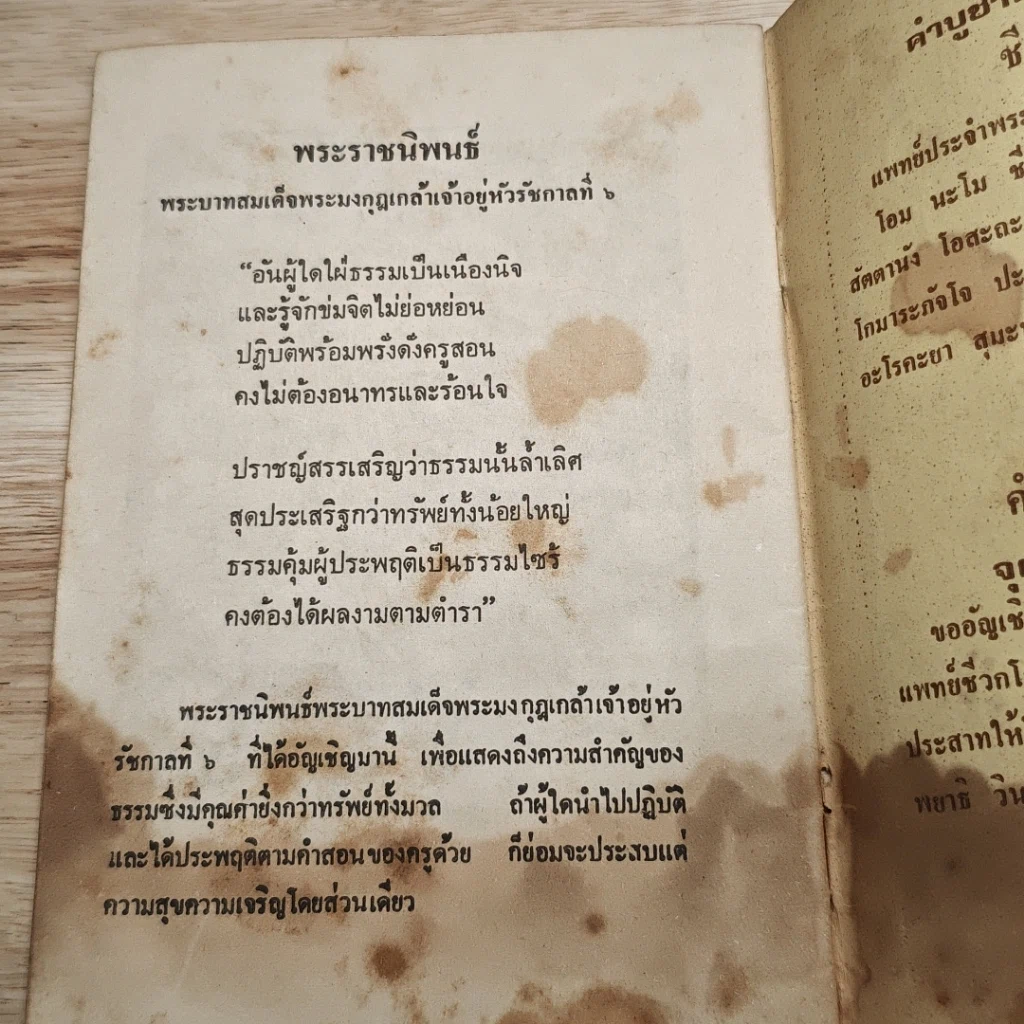 พระราชนิพนธ์
พระบาทสมเด็จพระมงกุฎเกล้าเจ้าอยู่หัวรัชกาลที่ ๖
“อันผู้ใดใฝ่ธรรมเป็นเนืองนิจ
และรู้จักข่มจิตไม่ย่อหย่อน
ปฏิบัติพร้อมพรั่งดั่งครูสอน
คงไม่ต้องอนาทรและร้อนใจ
ปราชญ์สรรเสริญว่าธรรมนั้นล้ำเลิศ
สุดประเสริฐกว่าทรัพย์ทั้งน้อยใหญ่
ธรรมคุ้มผู้ประพฤติเป็นธรรมไซร้
คงต้องได้ผลงามตามตำรา”
พระราชนิพนธ์พระบาทสมเด็จพระมงกุฎเกล้าเจ้าอยู่หัว
รัชกาลที่ ๖ ที่ได้อัญเชิญมานี้ เพื่อแสดงถึงความสำคัญของ
ธรรมซึ่งมีคุณค่ายิ่งกว่าทรัพย์ทั้งมวล ถ้าผู้ใดนำไปปฏิบัติ
และได้ประพฤติตามคำสอนของครูด้วย ก็ย่อมจะประสบแต่
ความสุขความเจริญโดยส่วนเดียว
แพทย์ประจำพระ
โอม นะโม
สัตตานัง โอสะถะ
โกมาระภัจโจ ปะ
อะโรคะยา สุมะ
ขออัญเชิ
แพทย์ชีวกโ
ประสาทให้
พยาธิ วิน